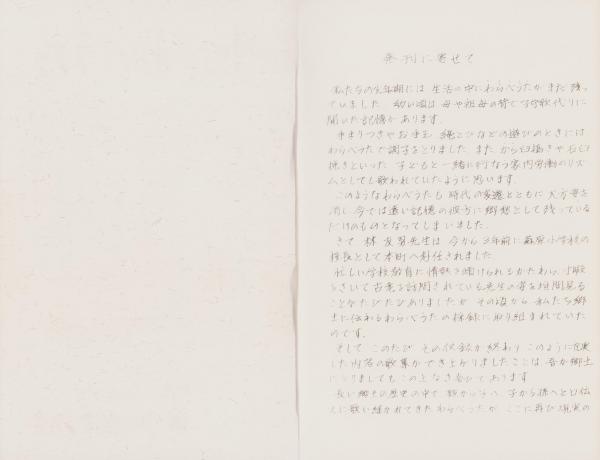 発刊に寄せて
私たちの少年期には 生活の中にわらべうたが まだ 残っ
ていました 幼い頃は 母や祖母の背で 子守歌代りに
聞いた記憶があります
手まりつきやお手玉 縄とびなどの遊びのときには
わらべうたで調子をとりました また からうす搗きや石臼
挽きといった 子どもと一緒に行なう家内労働のリズ
ムとしても歌われていたように思います
このようなわらべうたも 時代の変遷とともに 大方姿を
消し 今では遠い記憶の彼方に郷愁として残っている
だけのものとなってしまいました
さて 林 先生は 今から 3年前に 小学校の
校長として本町へ赴任されました
忙しい学校教育に情熱を傾けられるかたわら 寸暇
をさいて古老を訪問されている先生の姿を垣間見る
ことがたびたびありましたが その頃から 私たち郷
土に伝わるわらべうたの採録に取り組まれていた
のです
そして このたび その採録が終わり このように充実
した内容の歌集ができ上がりましたことは 吾が郷土
にとりましても この上なき喜びであります
長い郷土の歴史の中で 親から子へ 子から孫へと口伝
えに歌い継がれてきたわらべうたが ここに再び現実の